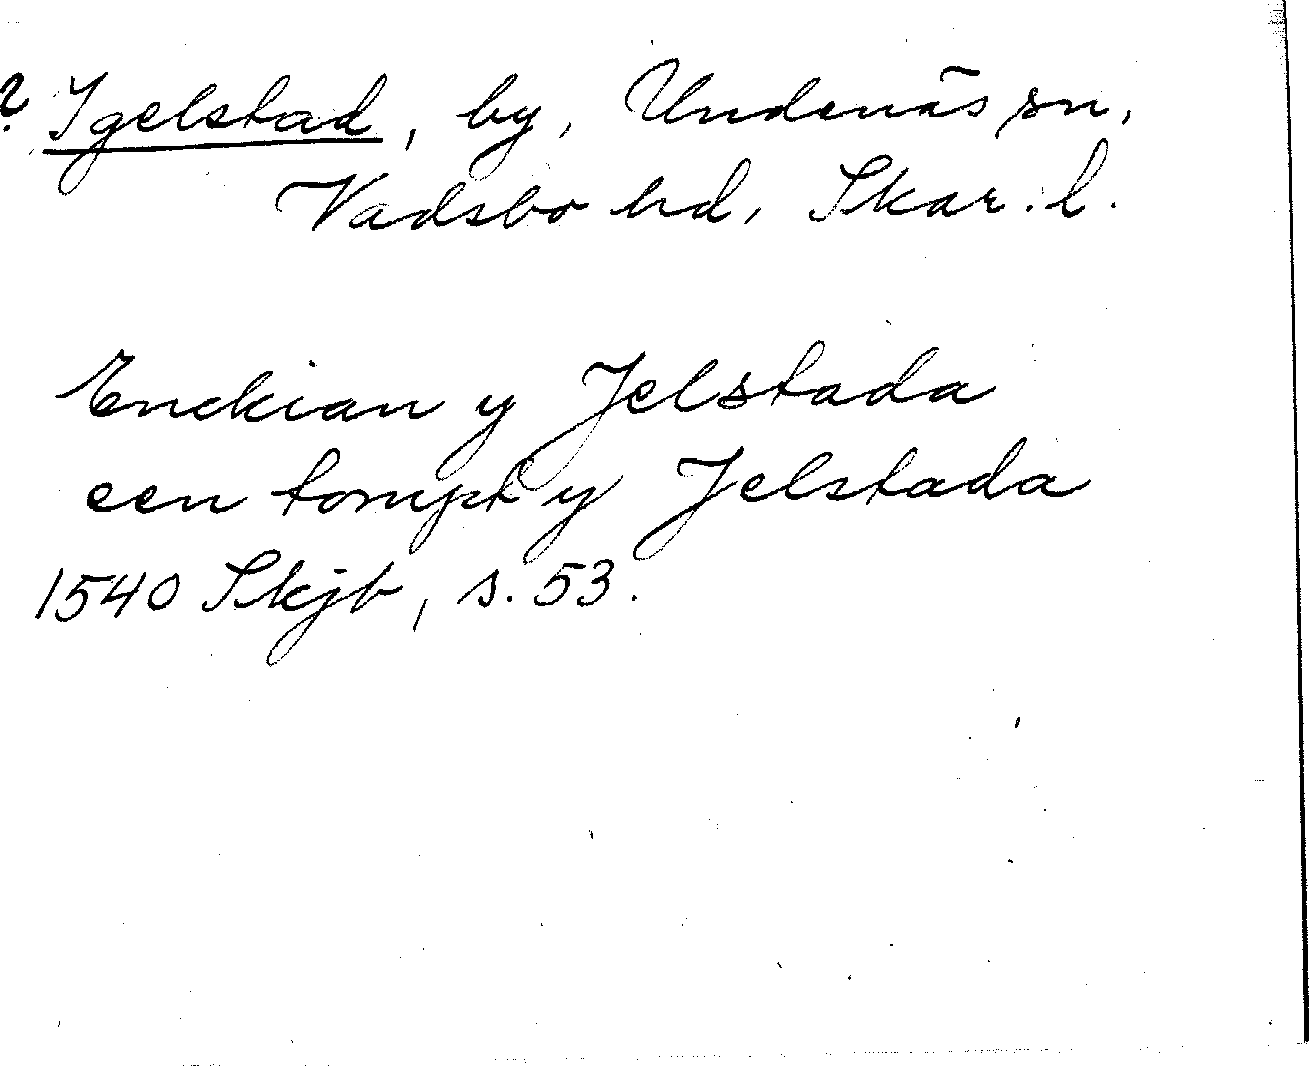 ? Igelstad, by, Undenäs sn,
Vadsbo hd, Skar. l.
Enckian y Jelstada
een tompt y Jelstada
1540 Skjb, s. 53.